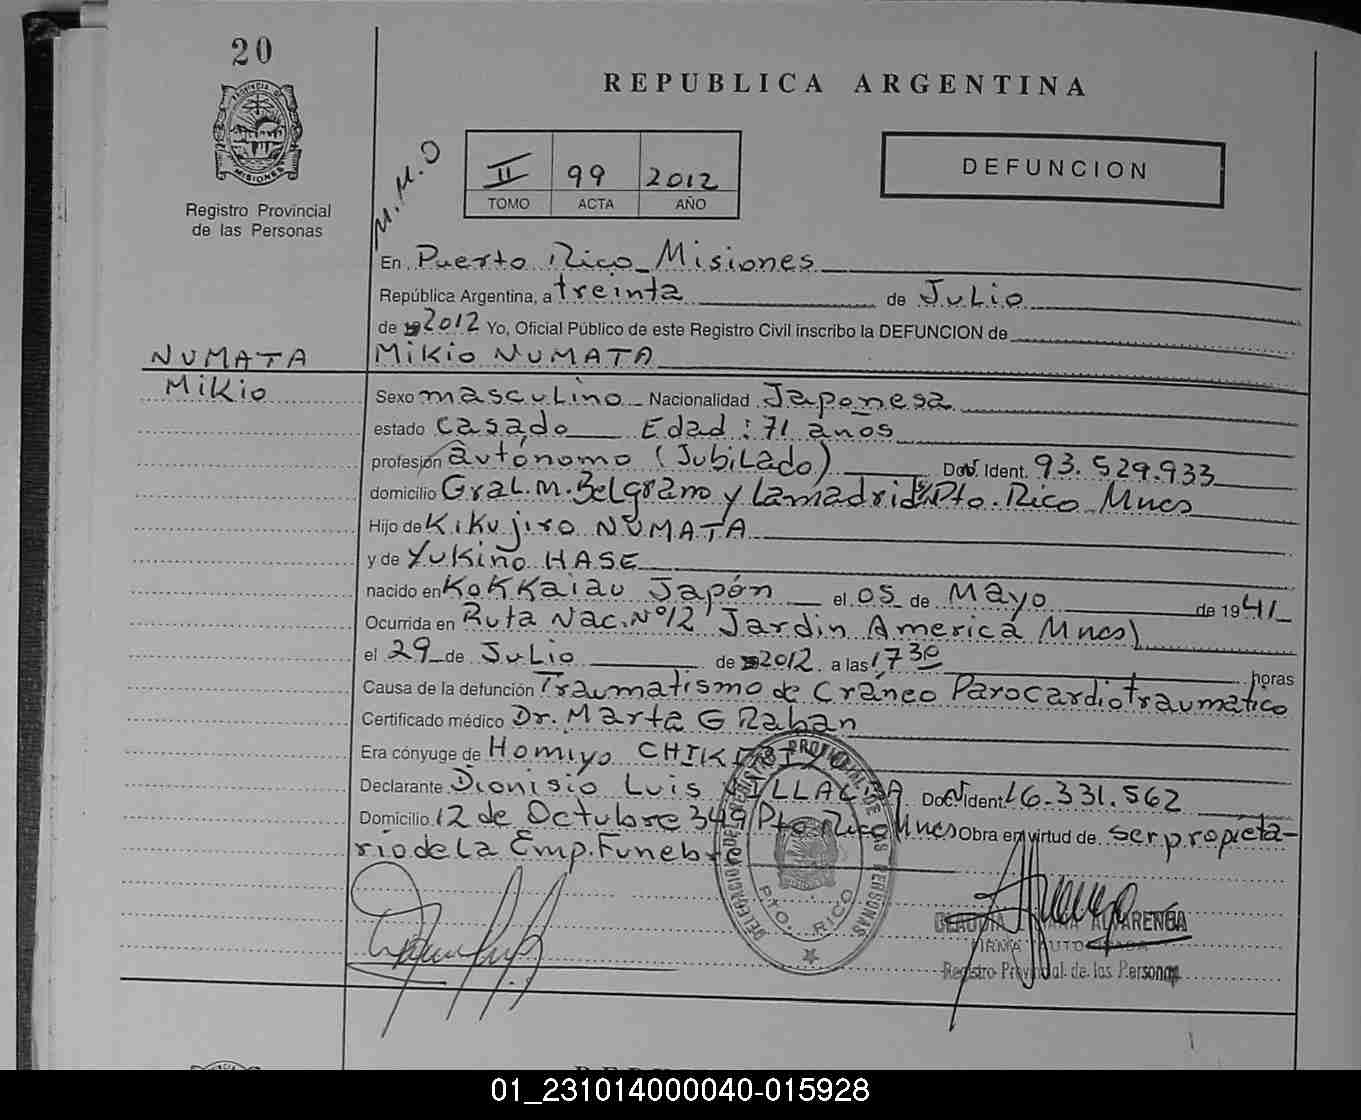 20
PROVINCIA DE
MISIONES
Registro Provincial
de las Personas
REPUBLICA ARGENTINA
M.M.O
II 99 2012
TOMO ACTA AÑO
DEFUNCION
En Puerto Rico Misiones
República Argentina, a treinta de Julio
de 2012 Yo, Oficial Público de este Registro Civil inscribo la DEFUNCION de
NUMATA
Mikio NUMATA
Mikio
Sexo masculino Nacionalidad Japonesa
estado casado Edad: 71 años
profesión autónomo (Jubilado) Doc. Ident. 93.529.933
domicilio Gral. M. Belgrano y Lamadrid Pto. Rico Mnes
Hijo de Kikujiro NUMATA
y de Yukino HASE
nacido en Kokkaiau Japón el 05 de Mayo de 1941
Ocurrida en Ruta Nac. Nº 12 Jardin America Mnes)
el 29 de Julio de 2012 a las 17 30 horas
Causa de la defunción Traumatismo de Cráneo Parocardiotraumático
Certificado médico Dr. Marta G Rahan
Era cónyuge de Homiyo
Declarante Dionisio Luis Doc. Ident. 16.331.562
Domicilio 12 de Octubre 349 Pto Rico Mnes Obra en virtud de ser propieta-
rio de la Emp. Funebre
DELEGACION DEL REGISTRO PROVINCIAL DE LAS PERSONAS
PTO. RICO
CLAUDIA ALVARENGA
FIRMA AUTORIZADA
Registro Provincial de las Personas
01_231014000040-015928